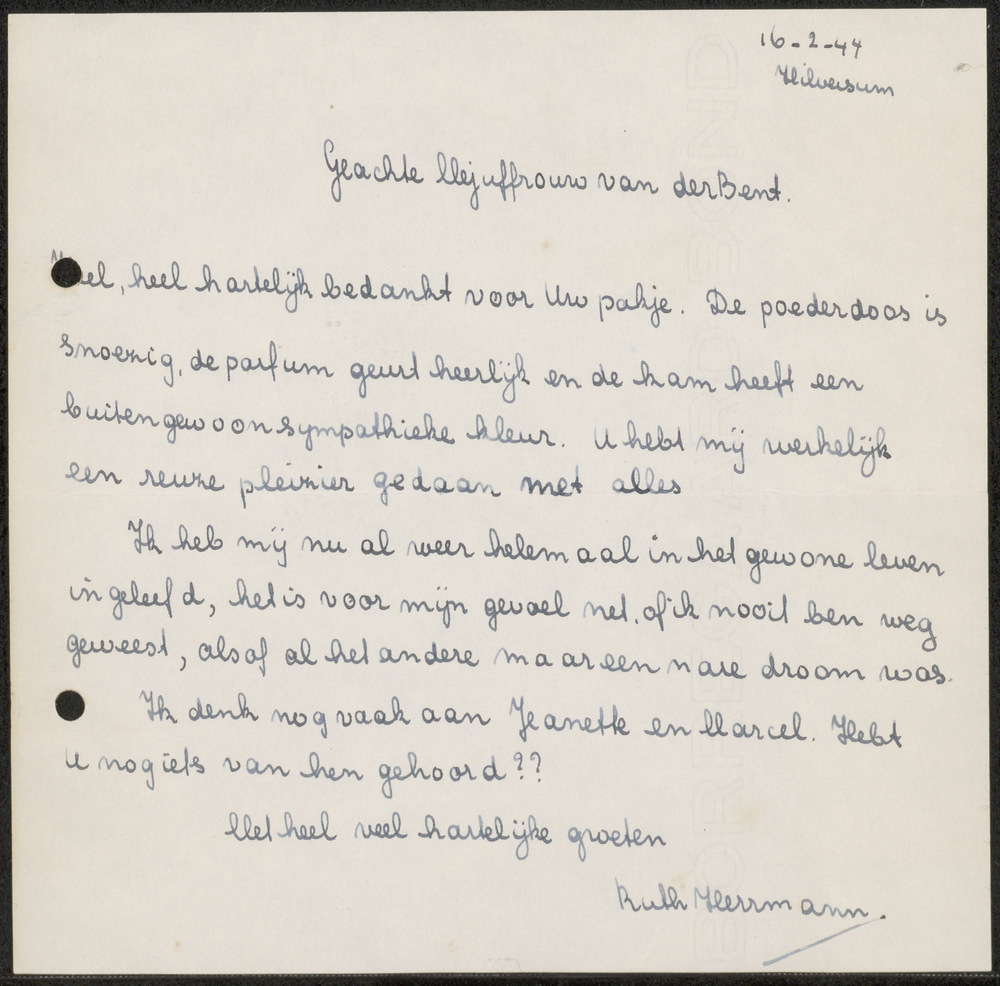 16-2-47
Hilversum
Geachte Mejuffrouw van der Bent.
Heel, heel hartelijk bedankt voor Uw pakje. De poederdoos is
snoezig, de parfum geurt heerlijk en de kam heeft een
buitengewoon sympathieke kleur. U hebt mij werkelijk
een reuze pleizier gedaan met alles
Ik heb mij nu al weer helemaal in het gewone leven
ingeleefd, het is voor mijn gevoel net of ik nooit ben weg
geweest, alsof al het andere maar een nare droom was.
Ik denk nog vaak aan Jeanette en Marcel. Hebt
U nog iets van hen gehoord??
Met heel veel hartelijke groeten
Ruth Herrmann.